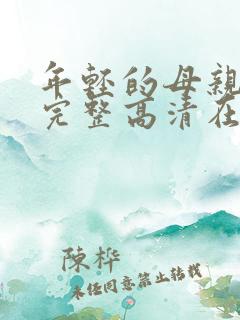 年轻的母亲
完整高清在
陈桦
未经同意禁止转载